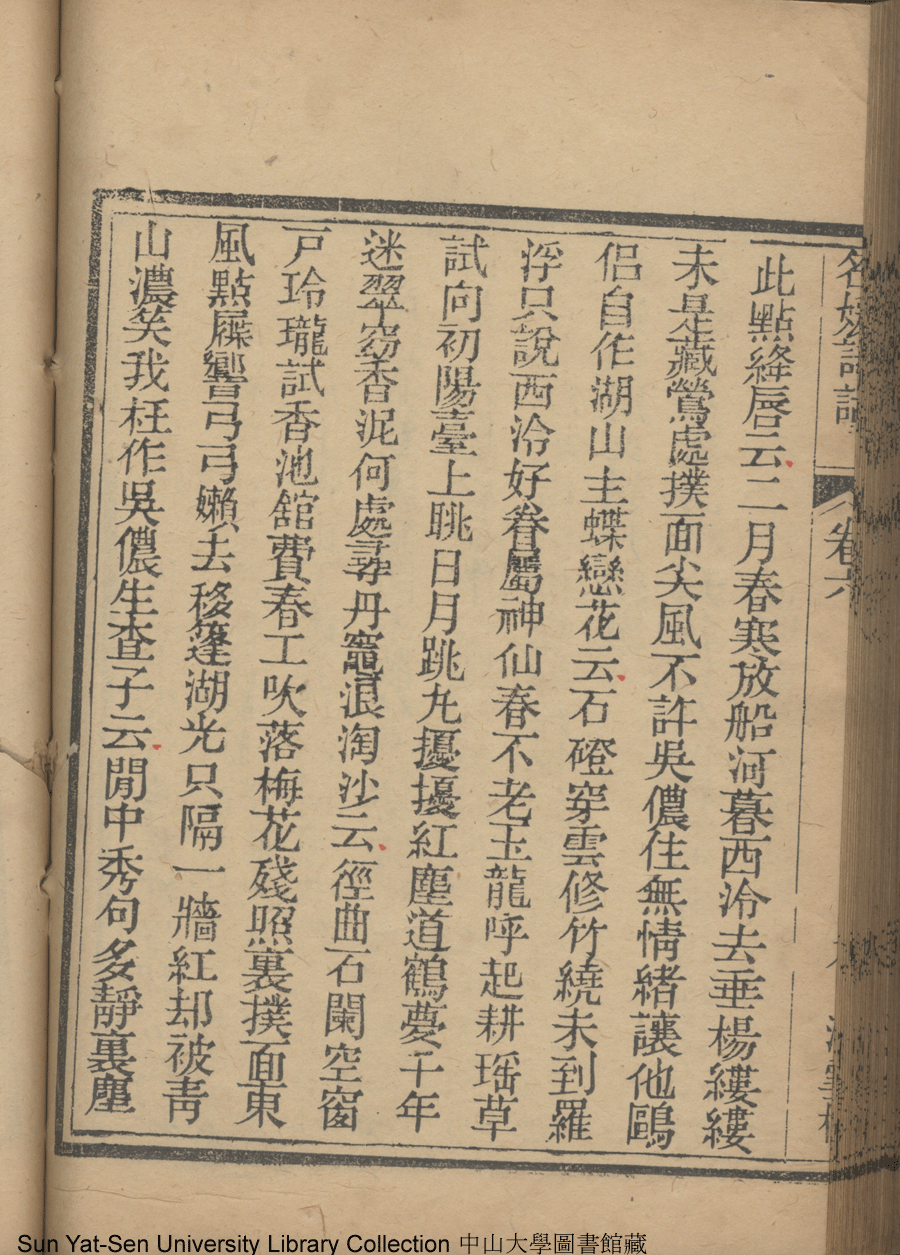 名媛詩話
卷六
此點絳唇云二月春寒放船河暮西泠去垂楊縷縷
未是藏鶯處撲面尖風不許吳儂住無情緒讓他鷗
侶自作湖山主蝶戀花云石磴穿雲修竹繞未到羅
浮只說西泠好眷屬神仙春不老玉龍呼起耕瑶草
試向初陽臺上眺日月跳九擾擾紅塵道鶴夢千年
迷翠窈香泥何處尋丹竈浪淘沙云徑曲石闌空窗
戸玲瓏試香池舘費春工吹落梅花殘照裏撲面東
風點屧響弓弓嬾去移篷湖光只隔一牆紅却被靑
山濃笑我枉作吳儂生查子云閒中秀句多靜裏塵
Sun Yat-Sen University Library Collection 中山大學圖書館藏